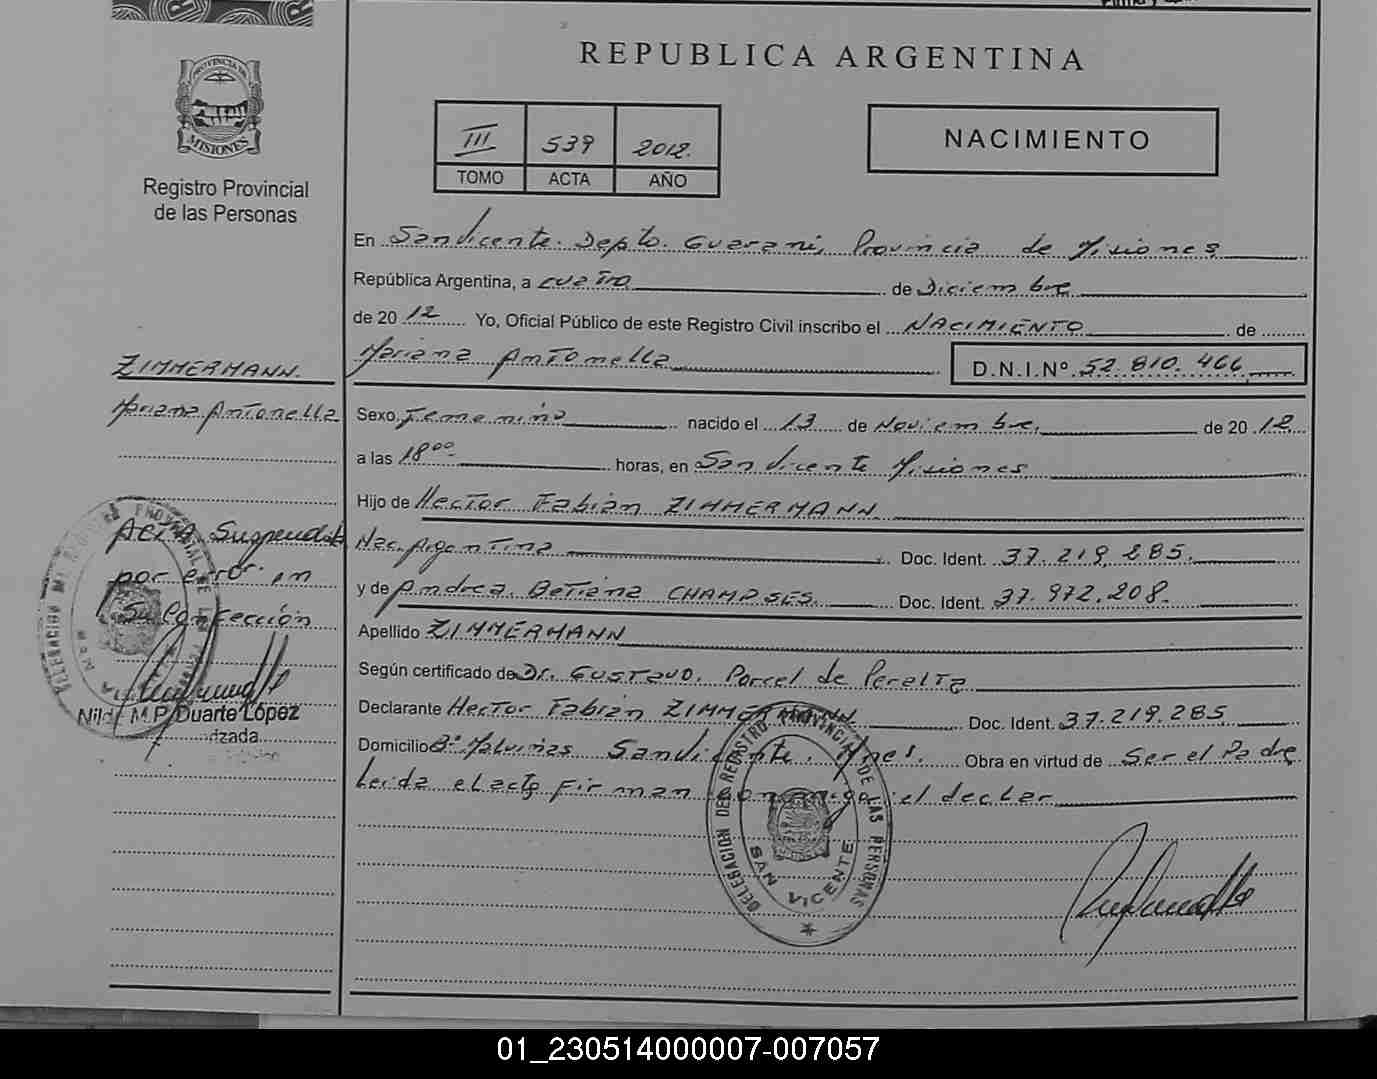 REPUBLICA ARGENTINA
PROVINCIA DE
MISIONES
Registro Provincial
de las Personas
III 539 2012.
TOMO ACTA AÑO
NACIMIENTO
En San Vicente. Depto. Guarani, Provincia de Misiones
República Argentina, a cuatro de Diciembre
de 2012 Yo, Oficial Público de este Registro Civil inscribo el NACIMIENTO de
Mariana Antonella D.N.I.Nº 52.810.466
ZIMMERMANN.
Mariana Antonella
Sexo Femenino nacido el 13 de Noviembre. de 2012
a las 18⁰⁰ horas, en San Vicente Misiones
Hijo de Hector Fabian ZIMMERMANN
Nac. Argentina Doc. Ident. 37.219.285.
y de Andrea Betiana Doc. Ident. 37.972.208.
Apellido ZIMMERMANN
Según certificado de Dr. Gustavo. Parcel de Peralta
Declarante Hector Fabian ZIMMERMANN Doc. Ident. 37.219.285
Domicilio Bº Malvinas San Vicente. Mnes. Obra en virtud de Ser el Padre
Leida el acta firman conmigo el declar
ACTA Suspendida
por error en
su confección
Nilda M.P. Duarte López
DELEGACION DEL REGISTRO PROVINCIAL DE LAS PERSONAS
SAN VICENTE
01_230514000007-007057